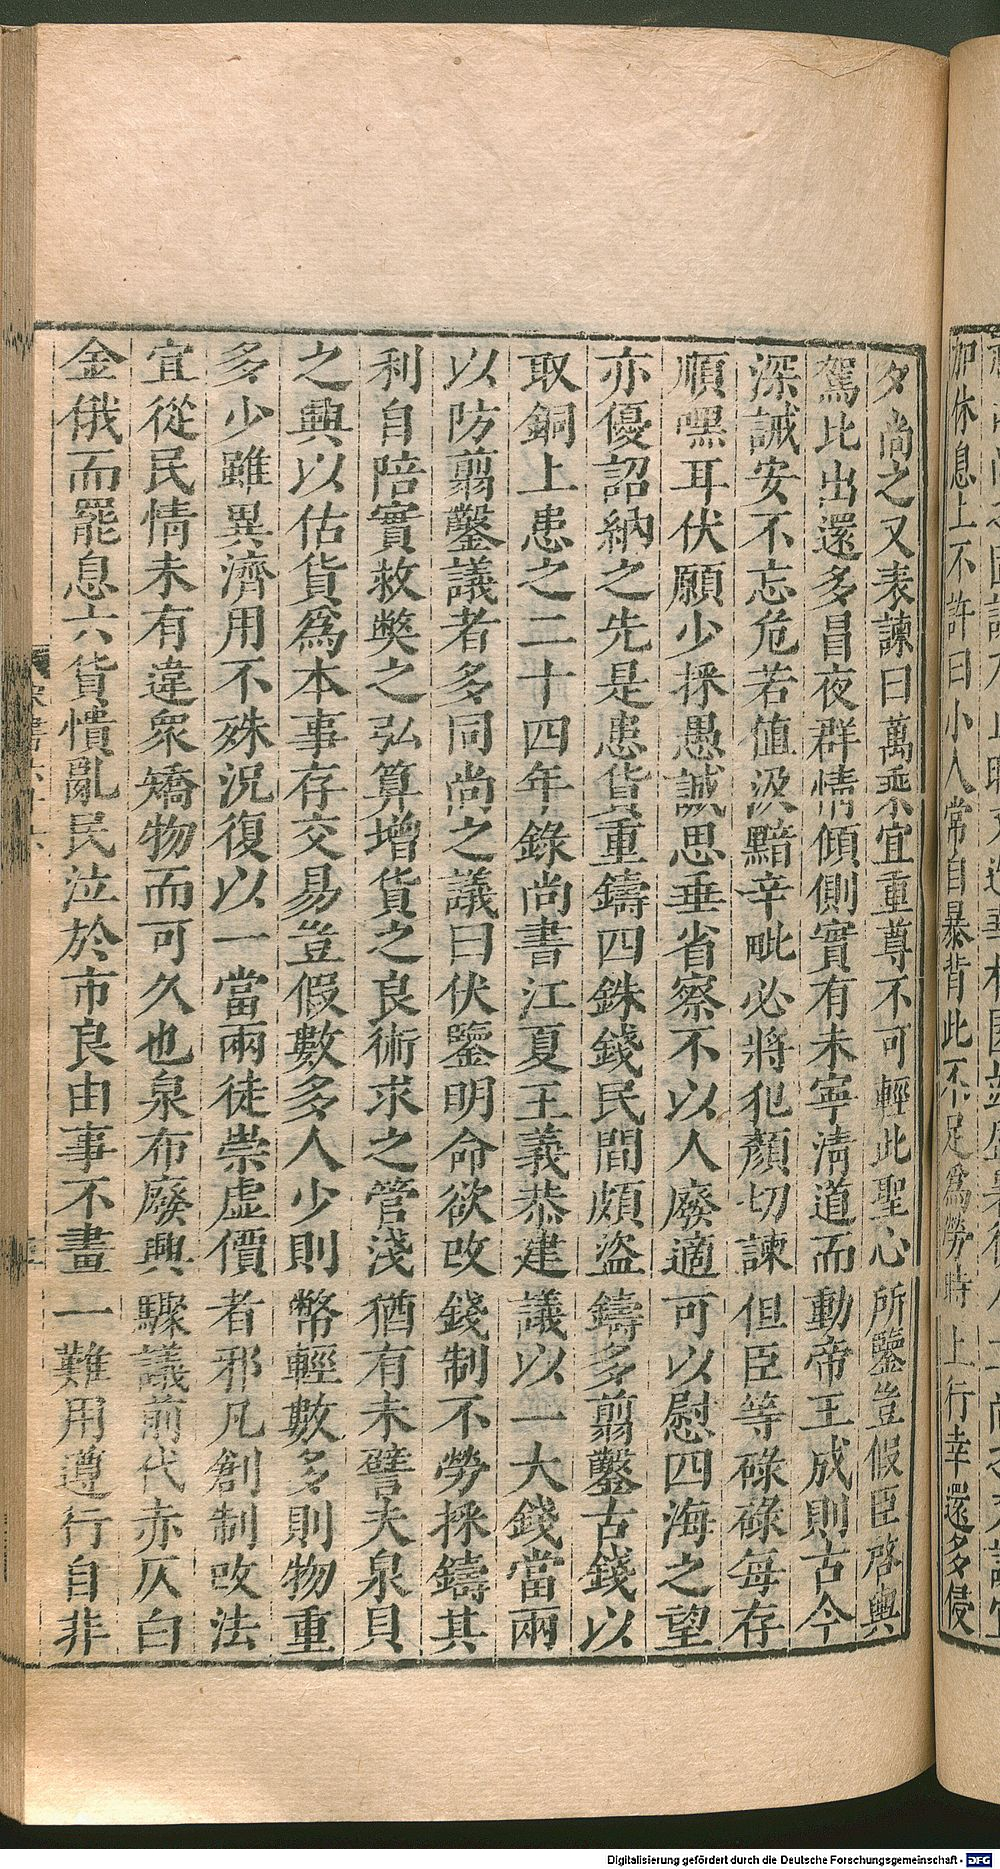 夕尚之又表諫曰萬乘宜重尊不可輕此聖心所鑒豈假臣啓輿
駕比出還多昌夜群情傾側實有未寧清道而動帝王成則古今
深誡安不忘危若值汲黯辛毗必將犯顏切諫但臣等碌碌每存
順嘿耳伏願少採愚誠思垂省察不以人廢適可以慰四海之望
亦優詔納之先是患貨重鑄四銖錢民間頗盜鑄多剪鑿古錢以
取銅上患之二十四年錄尚書江夏王義恭建議以一大錢當兩
以防剪鑿議者多同尚之議曰伏鑒明命欲改錢制不勞採鑄其
利自陪實救獘之弘算增貨之良術求之管淺猶有未譬夫泉貝
之興以估貨爲本事存交易豈假數多人少則幣輕數多則物重
多少雖異濟用不殊況復以一當兩徒崇虛價者邪凡創制改法
宜從民情未有違衆矯物而可久也泉布廢興驟議前代赤仄白
金俄而罷息六貨憒亂民泣於市良由事不畫一難用遵行自非
加休息上不許曰小人常自暴背此不足爲勞時上行幸還多侵
Digitalisierung gefördert durch die Deutsche Forschungsgemeinschaft - DFG